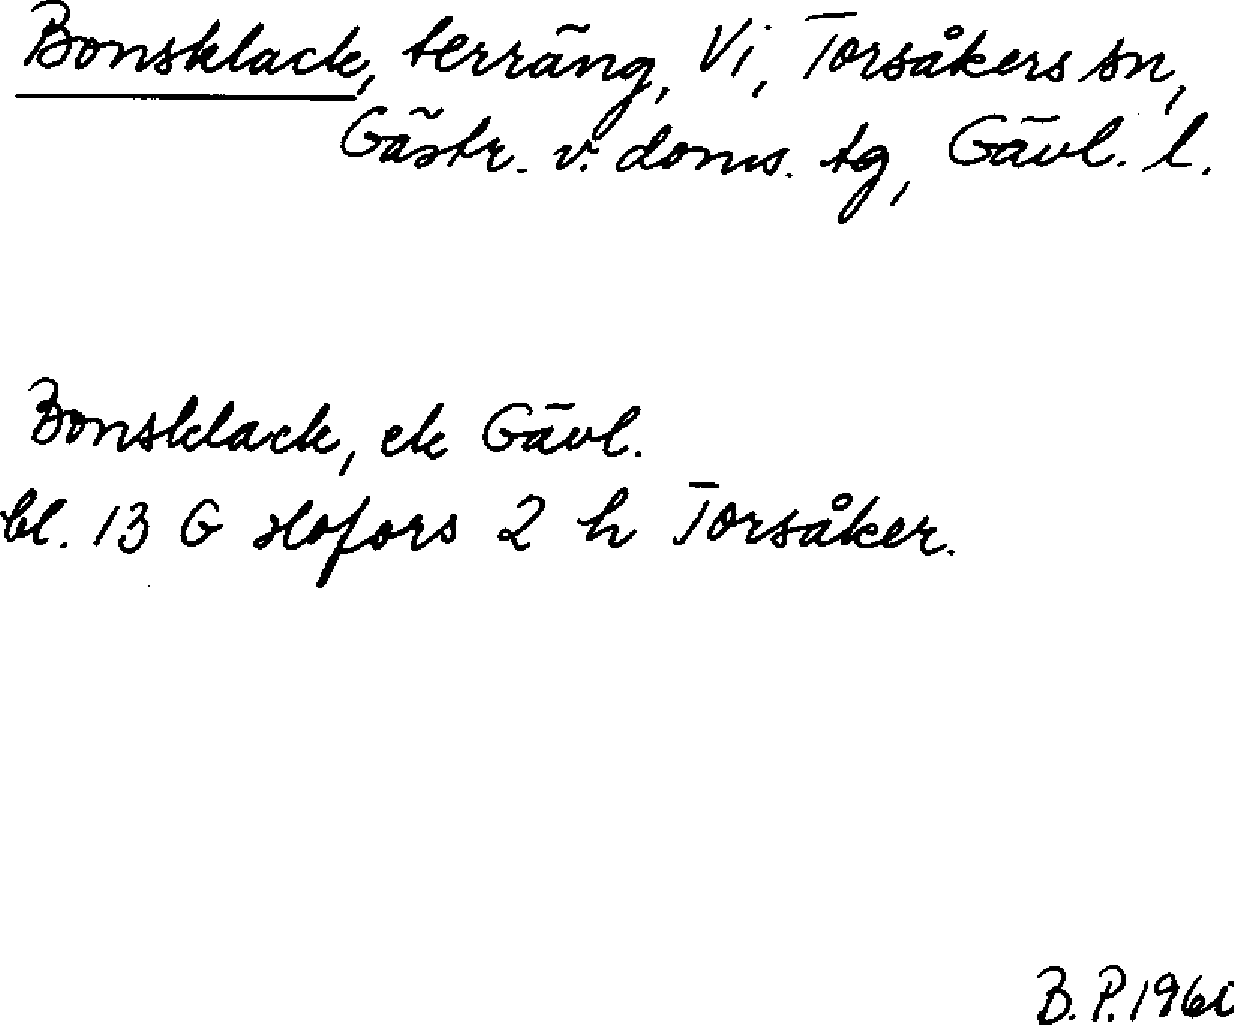 Bonsklack, terräng, Vi, Torsåkers sn,
Gästr. v. doms. tg, Gävl. l.
Bonsklack, ek Gävl.
bl. 13 G Hofors 2 h Torsåker.
B. P. 1960